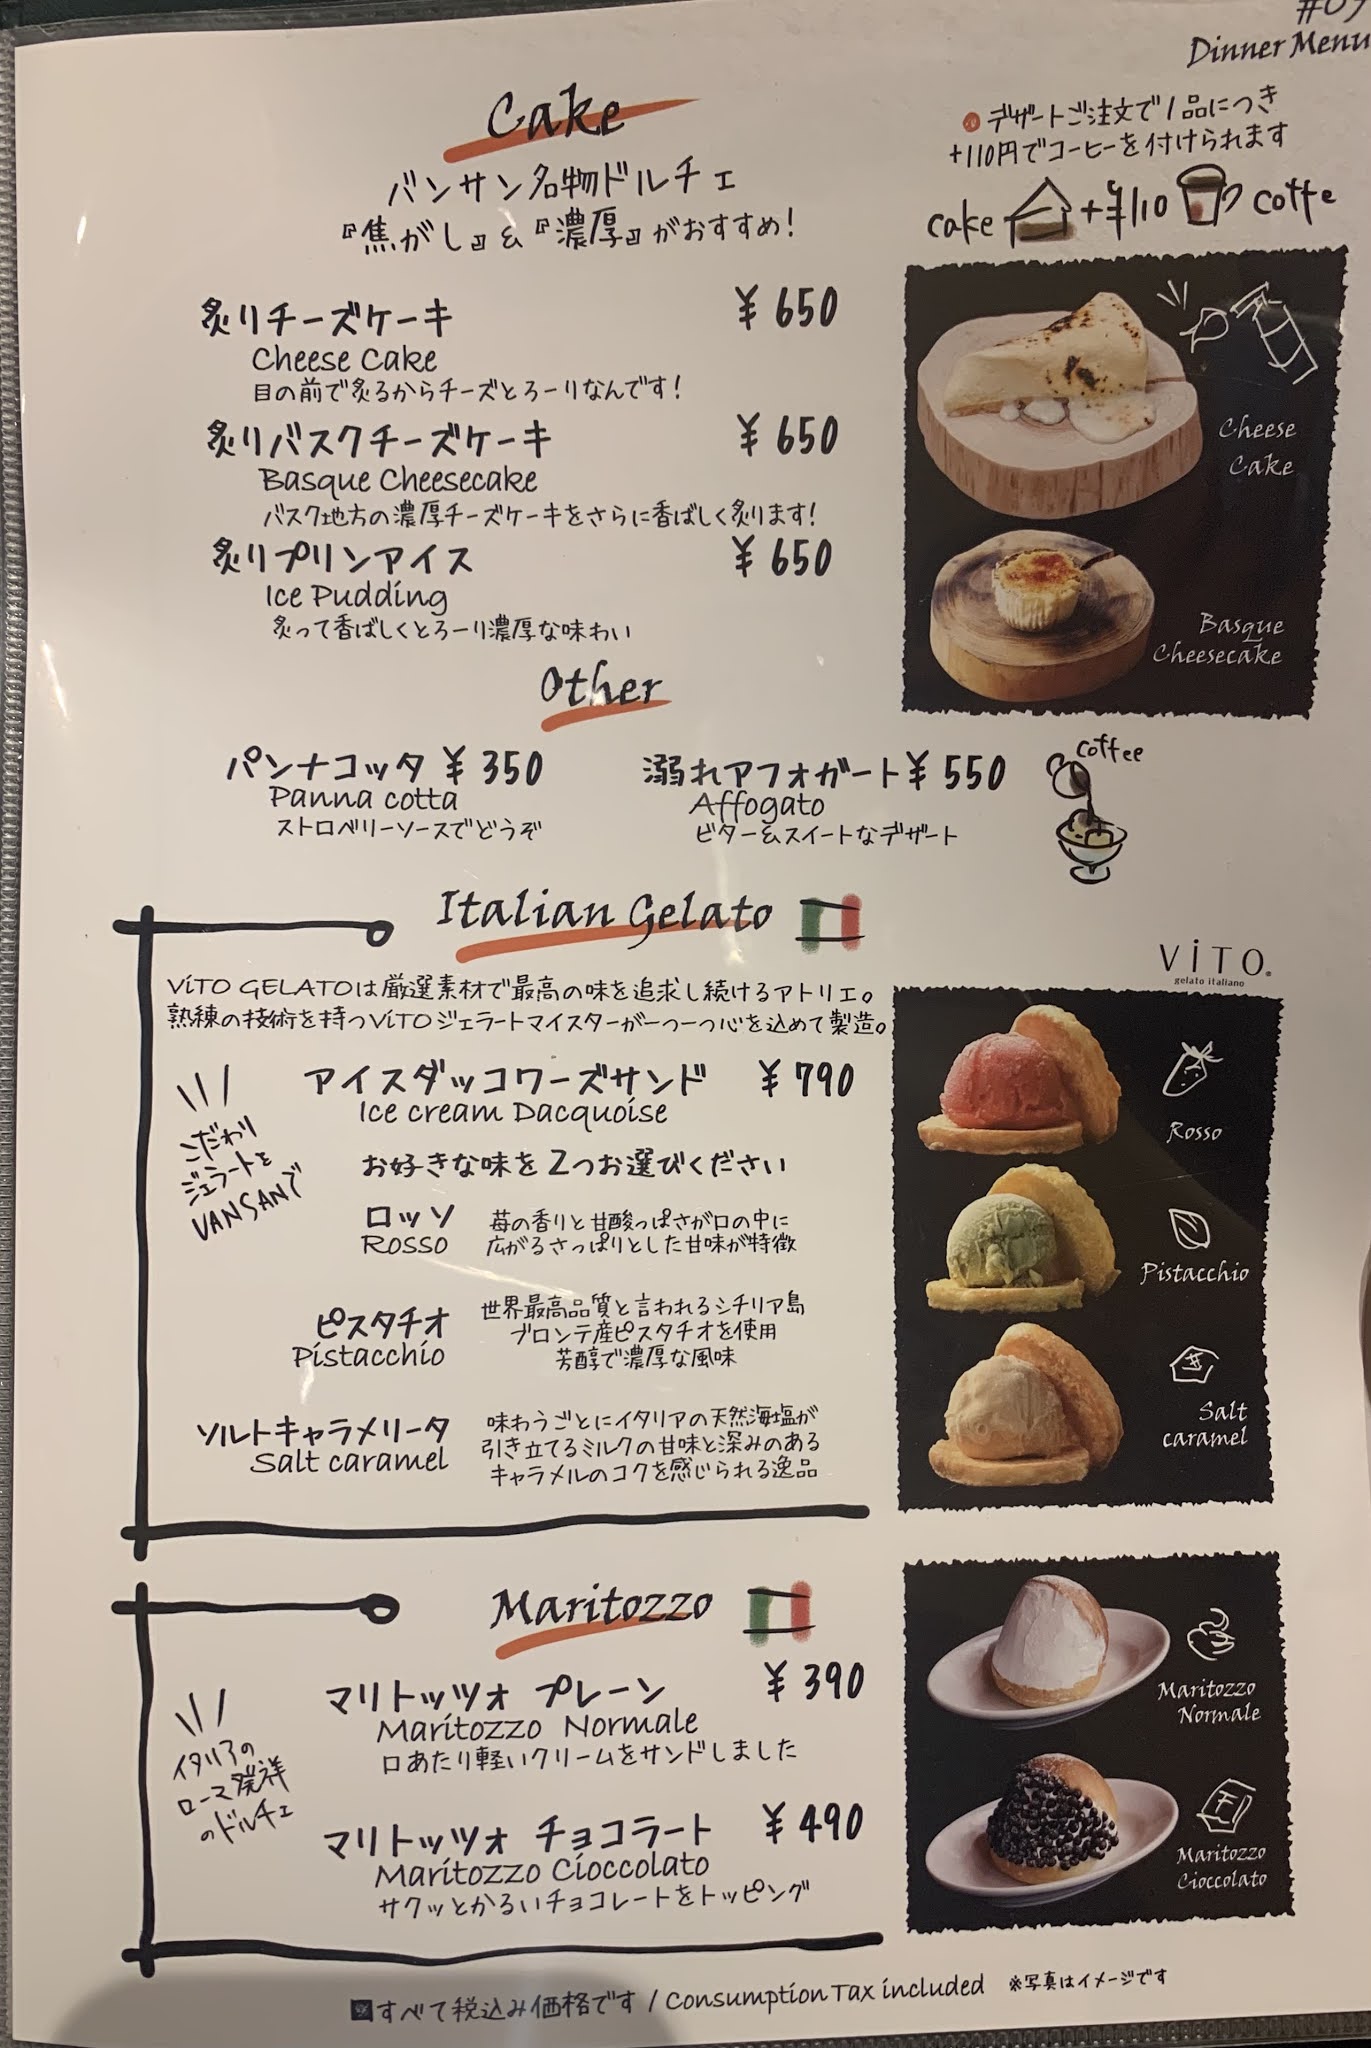 Dinner Menu
Cake
バンサン名物ドルチェ
『焦がし』&『濃厚』がおすすめ!
●デザートご注文で1品につき
+110円でコーヒーを付けられます
cake +¥110 coffe
炙りチーズケーキ ¥650
Cheese Cake
目の前で炙るからチーズとろーりなんです!
炙りバスクチーズケーキ ¥650
Basque Cheesecake
バスク地方の濃厚チーズケーキをさらに香ばしく炙ります!
炙りプリンアイス ¥650
Ice Pudding
炙って香ばしくとろーり濃厚な味わい
Cheese
Cake
Basque
Cheesecake
Other
パンナコッタ ¥350
Panna cotta
ストロベリーソースでどうぞ
溺れアフォガート ¥550
Affogato
ビター&スイートなデザート
coffee
Italian Gelato
ViTO GELATOは厳選素材で最高の味を追求し続けるアトリエ。
熟練の技術を持つViTOジェラートマイスターが一つ一つ心を込めて製造。
ViTO
gelato italiano
こだわり
ジェラートを
VANSANで
アイスダッコワーズサンド ¥790
Ice cream Dacquoise
お好きな味を2つお選びください
ロッソ
Rosso
苺の香りと甘酸っぱさが口の中に
広がるさっぱりとした甘味が特徴
ピスタチオ
Pistacchio
世界最高品質と言われるシチリア島
ブロンテ産ピスタチオを使用
芳醇で濃厚な風味
ソルトキャラメリータ
Salt caramel
味わうごとにイタリアの天然海塩が
引き立てるミルクの甘味と深みのある
キャラメルのコクを感じられる逸品
Rosso
Pistacchio
Salt
caramel
Maritozzo
イタリアの
ローマ発祥
のドルチェ
マリトッツォ プレーン ¥390
Maritozzo Normale
口あたり軽いクリームをサンドしました
マリトッツォ チョコラート ¥490
Maritozzo Cioccolato
サクッとかるいチョコレートをトッピング
Maritozzo
Normale
Maritozzo
Cioccolato
すべて税込み価格です / Consumption Tax included ※写真はイメージです